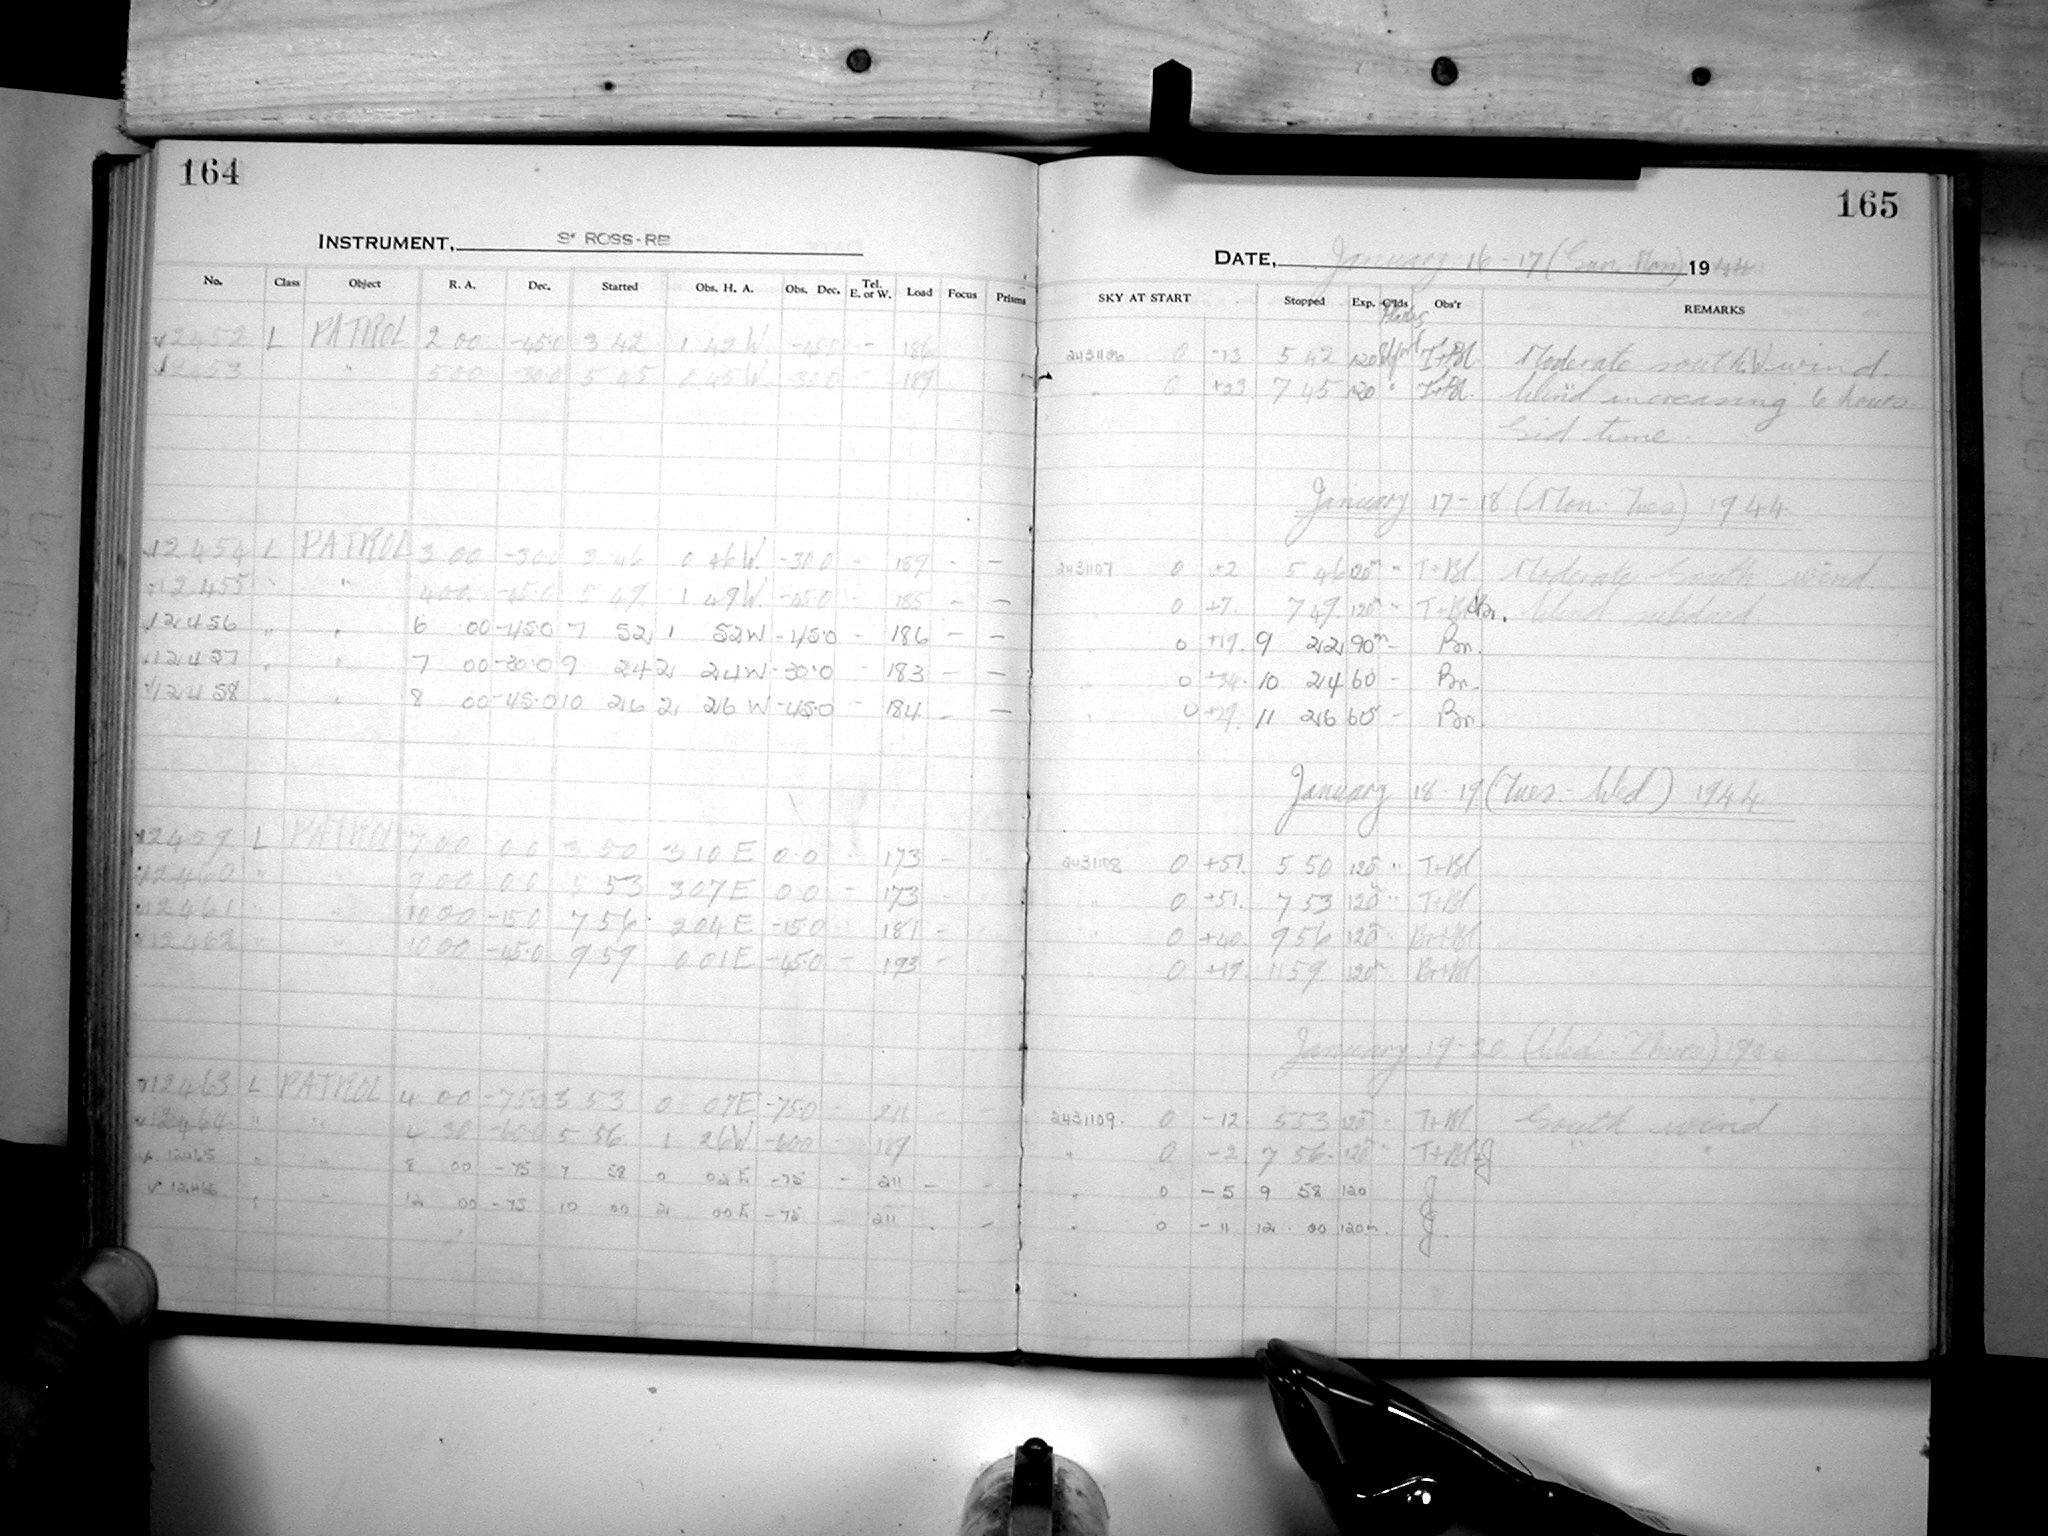 164
INSTRUMENT, 3" ROSS-RB
No. Class Object R. A. Dec. Started Obs. H. A. Obs. Dec. Tel. E. or W. Load Focus Prisms
12452 L PATROL 2 00 -45.0 3 42 1 42 W. -45.0 - 186
12453 " 5 00 -30.0 5 45 0 45 W. -30.0 189
12454 L PATROL 3 00 -30.0 3 46 0 46 W. -30.0 - 189 - -
12455 " " 4 00 -45.0 5 49 1 49 W. -45.0 - 185 - -
12456 " " 6 00 -45.0 7 52 1 52 W -45.0 - 186 - -
12457 " " 7 00 -30.0 9 24 2 24 W -30.0 - 183 - -
12458 " " 8 00 -45.0 10 26 2 26 W -45.0 - 184 - -
12459 L PATROL 7 00 0 0 3 50 3 10 E 0.0 - 173 -
12460 " " 9 00 0 0 5 53 3 07 E 0.0 - 173 -
12461 " " 10 00 -15 0 7 56 2 04 E -15.0 181 -
12462 " " 10 00 -45.0 9 59 0 01 E -45.0 - 193 -
12463 L PATROL 4 00 -75.0 3 53 0 07 E -75.0 - 211 - -
12464 " " 4 30 -60.0 5 56 1 26 W -60.0 - 189
12465 " " 8 00 -75 7 58 0 02 E -75 - 211 - -
12466 " " 12 00 -75 10 00 2 00 E -75 - 211 - -
165
DATE, January 16-17 (Sun. Mon) 1944
SKY AT START Stopped Exp. C'lds Obs'r REMARKS
Plates
2431106 0 -13 5 42 120 T+Bl. Moderate south W. wind.
" 0 +23 7 45 120 " T+Bl. Wind increasing 6 hours
Sid time.
January 17-18 (Mon. Tues) 1944
2431107 0 +2 5 46 120m " T+Bl Moderate South wind.
" 0 +7. 7 49 120m " T+Bl+Br. Wind subdued
0 +19. 9 22 90m - Br.
0 +34. 10 24 60 - Br.
0 +29. 11 26 60m - Br.
January 18-19 (Tues.-Wed) 1944
2431108 0 +51. 5 50 120m " T+Bl
" 0 +51. 7 53 120m " T+Bl
" 0 +40. 9 56 120m " Br+Bl
" 0 +19. 11 59 120m Br+Bl
January 19-20 (Wed-Thurs) 1944
2431109. 0 -12 5 53 120m " T+Bl South wind
" 0 -2 7 56 120m " T+Bl+J " "
" 0 -5 9 58 120 J
" 0 -11 12 00 120m. J